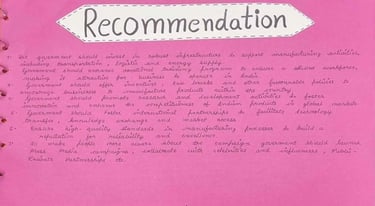 Recommendation
1- The government should invest in robust infrastructure to support manufacturing activities,
including transportation, logistic and energy supply.
Government should enhance vocational training programs to ensure a skilled workforce,
making it attractive for business to operate in India.
Government should offer incentives, tax breaks and other favourable policies to
encourage businesses to manufacture products within the country.
Government should promote research and development activities to foster
innovation and enhance the competitiveness of Indian products in global markets.
5- Government should foster international partnerships to facilitate technology
transfer, knowledge exchange and market access
6- Ensure high-quality standards in manufacturing processes to build a
reputation for reliability and excellence.
7- To make people more aware about the campaign government should
Mass Media campaigns, collaborate with celebrities and influencers, Public-
Private Partnerships etc.